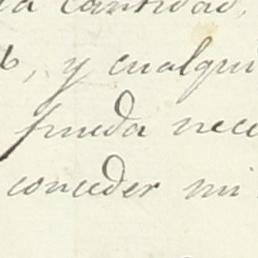 la cantidad,
, y cualqui
pueda nece
conceder mi